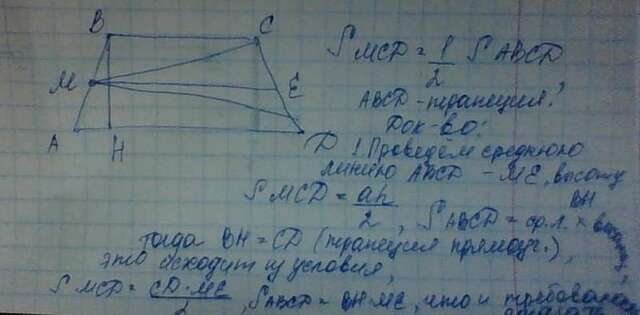 B C
M E
A H D
S MCD = 1/2 S ABCD
ABCD - трапеция.
Док-во:
! Проведём среднюю
линию ABCD - ME, высоту
BH
S MCD = ah/2, S ABCD = ср.л. × высоту,
тогда BH = CD (трапеция прямоуг.),
это исходит из условия,
S MCD = CD·ME/2, S ABCD = BH·ME, что и требовалось